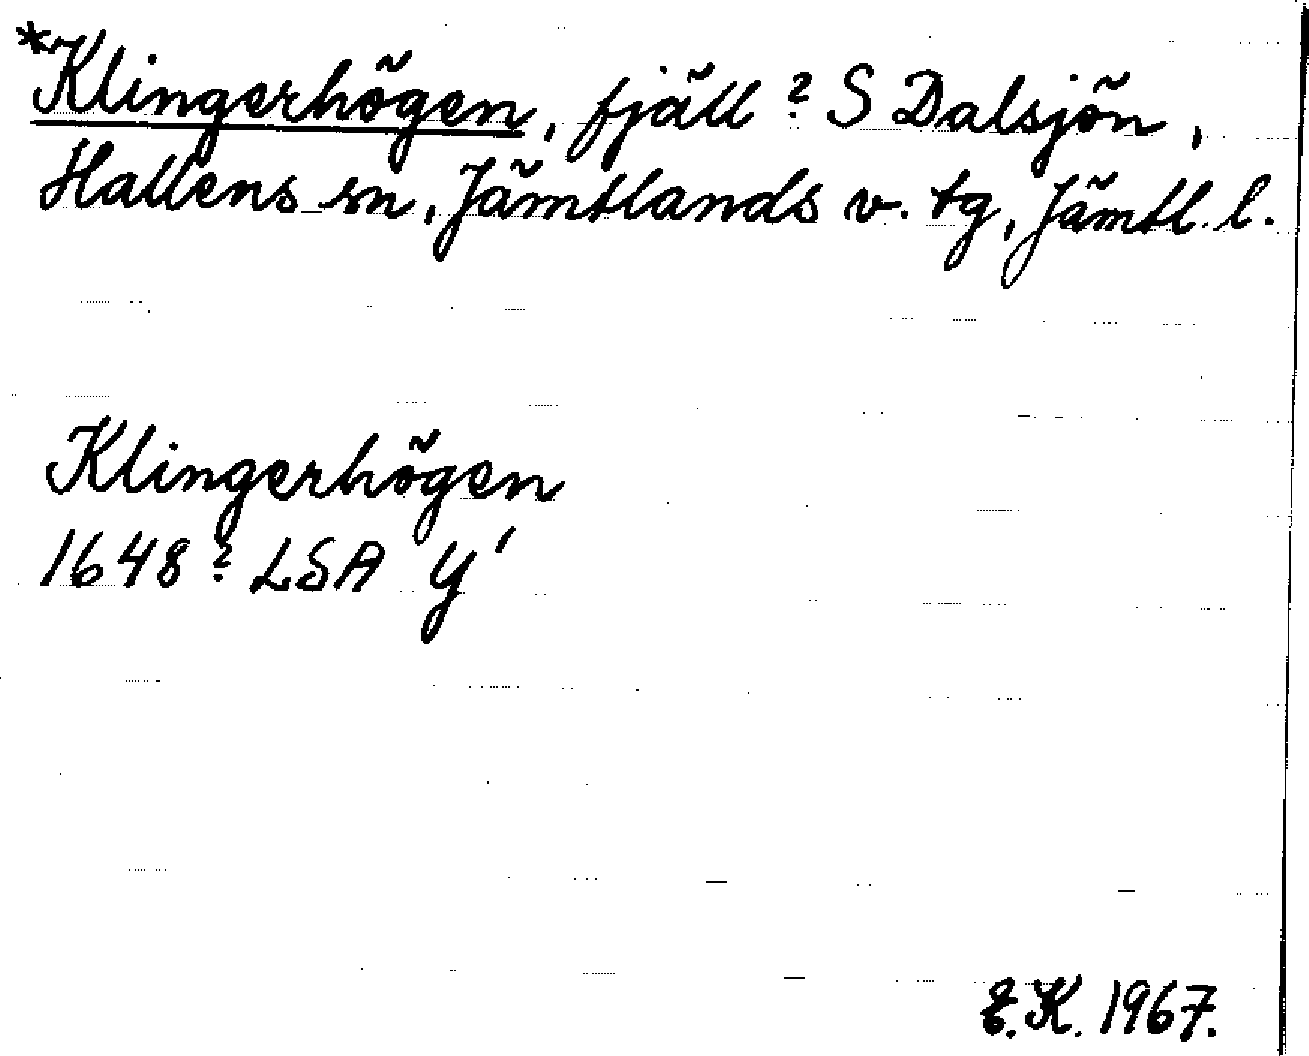 *Klingerhögen, fjäll? S Dalsjön,
Hallens sn, Jämtlands v. tg, Jämtl. l.
Klingerhögen
1648? LSA Y'
E.K. 1967.